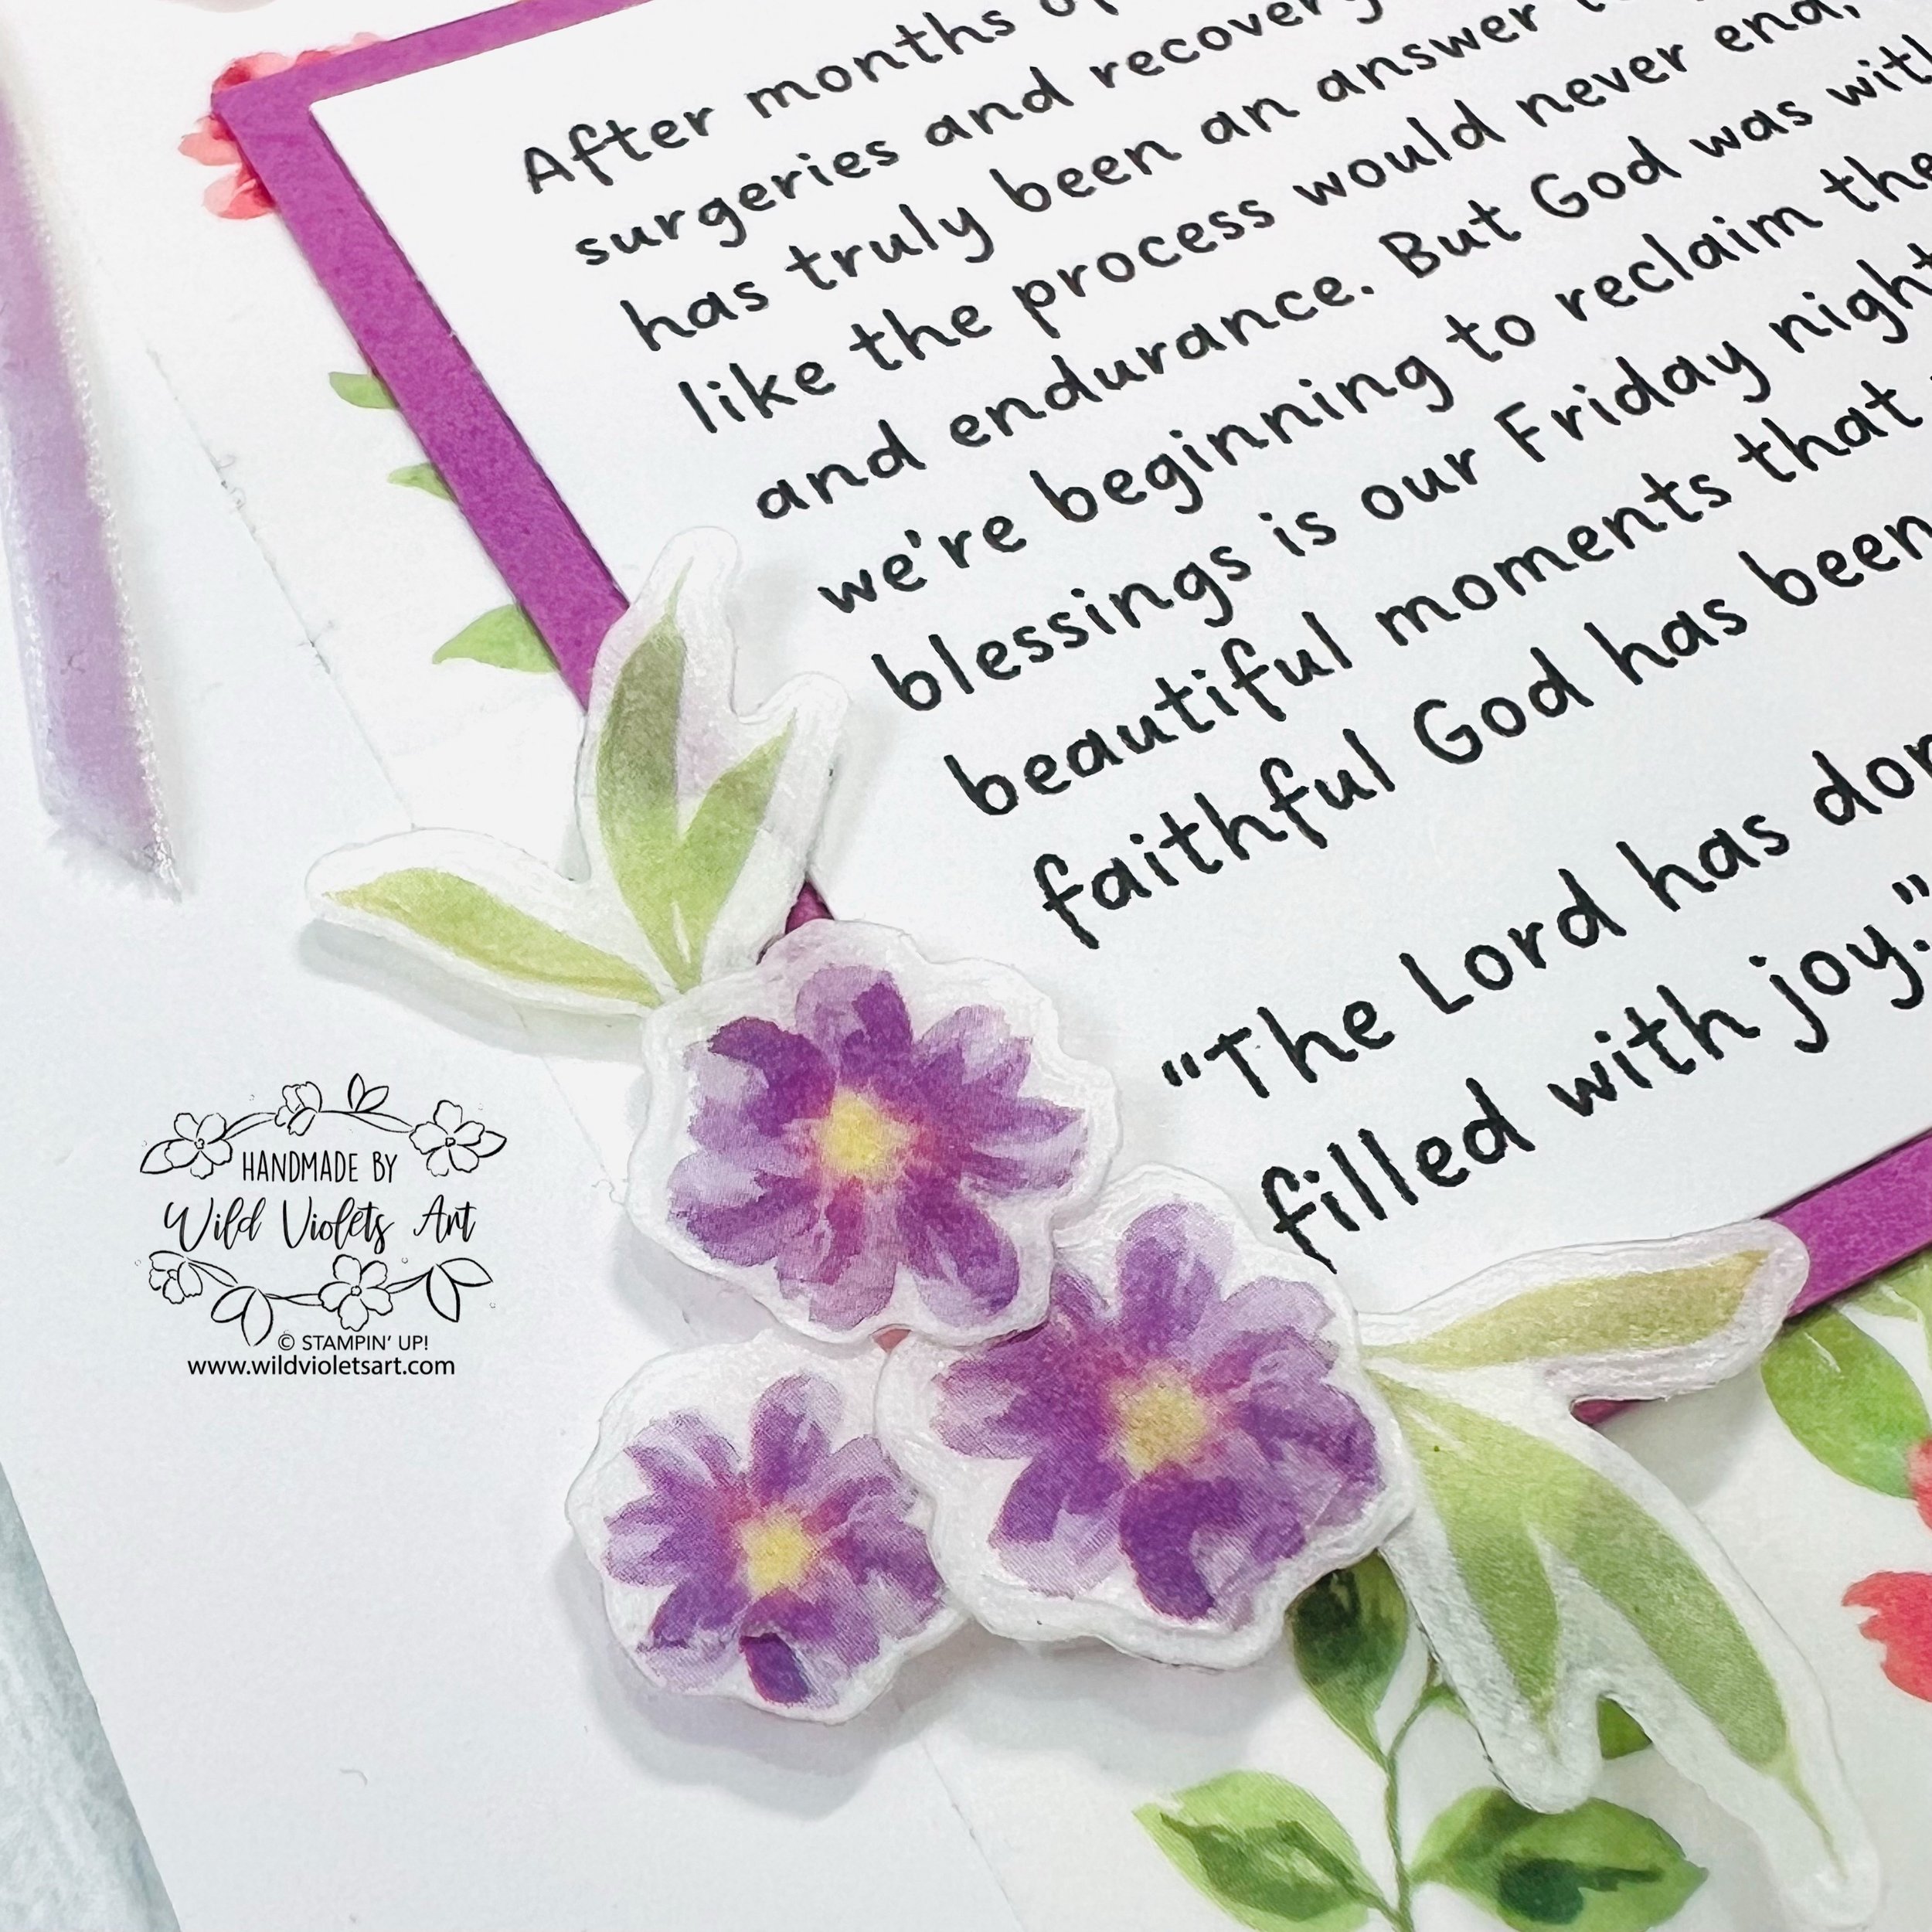 After months of
surgeries and recovery
has truly been an answer
like the process would never end,
and endurance. But God was with
we're beginning to reclaim the
blessings is our Friday night
beautiful moments that
faithful God has been
"The Lord has
filled with joy."
HANDMADE BY
Wild Violets Art
© STAMPIN' UP!
www.wildvioletsart.com